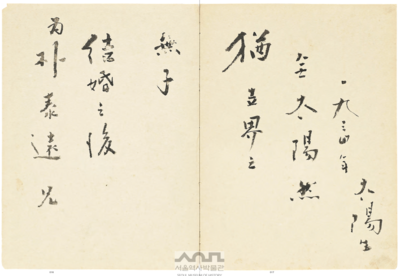 為朴泰遠兄
結婚之後
無子
猶世界之
無太陽然
一九三四年
太陽生
서울역사박물관